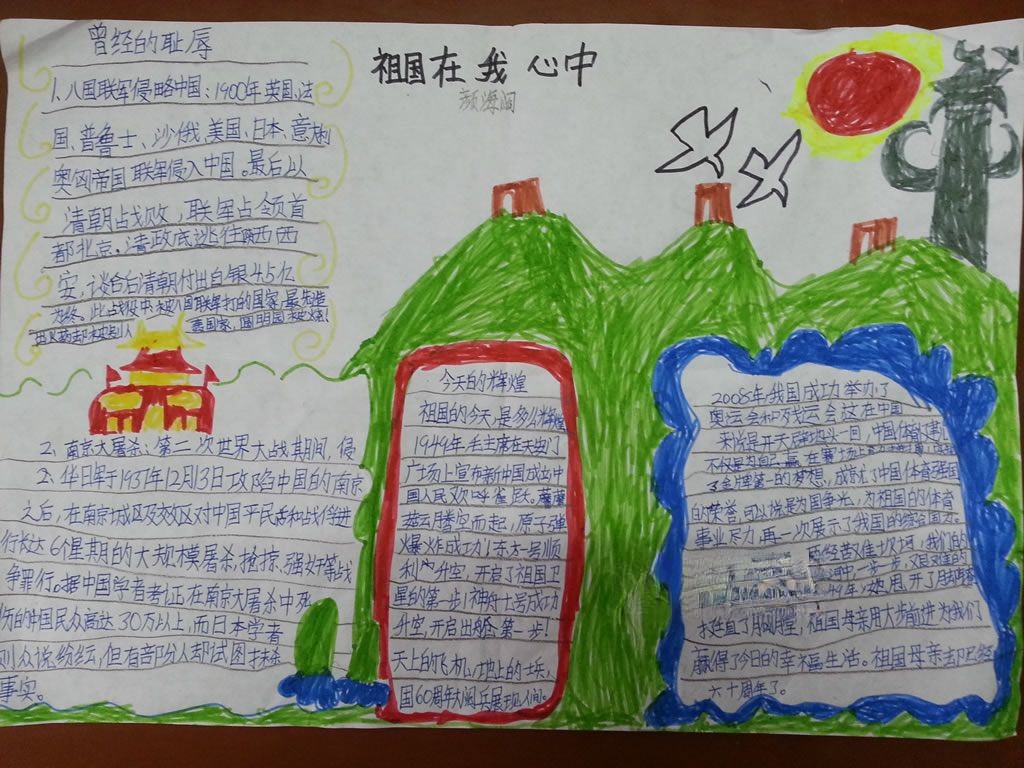 曾经的耻辱
1、八国联军侵略中国：1900年英国、法
国、普鲁士、沙俄、美国、日本、意大利
奥匈帝国联军侵入中国。最后以
清朝战败，联军占领首
都北京。清政府逃往陕西西
安，谈合后清朝付出白银4.5亿
为终。此战役中被八国联军打的国家，最先造
2、南京大屠杀：第二次世界大战期间，侵
2、华日军于1937年12月13日攻陷中国的南京
之后，在南京城区及效区对中国平民和战俘进
行长达6个星期的大规模屠杀、抢掠、强奸等战
争罪行。据中国学者考证在南京大屠杀中死
伤的中国民众高达30万以上，而日本学者
则众说纷纭，但有部分人却试图抹杀
事实。
祖国在我心中
颜海阔
今天的辉煌
祖国的今天是多么辉煌
1949年毛主席在天安门
广场上宣布新中国成立中
国人民欢呼雀跃。蘑菇
云腾空而起，原子弹
爆炸成功！东方一号顺
利升空，开启了祖国卫
星的第一步！神舟七号成功
升空，开启出舱第一步！
天上的飞机，地上的士兵，
国60周年大阅兵展现人间。
2008年，我国成功举办了
奥运会和残奥会这在中国
来说是开天辟地头一回，中国体育健儿
不仅是为自己赢，在赛场上
了金牌第一的梦想，成就了中国体育强国
的荣誉，可以说是为国争光，为祖国的体育
事业尽力，再一次展示了我国的综合国力。
历经数次坎坷，我们的
河中一步一步，艰难的
才挺直了胸膛，祖国母亲用大步前进为我们
赢得了今日的幸福生活。祖国母亲却已经
六十周年了。